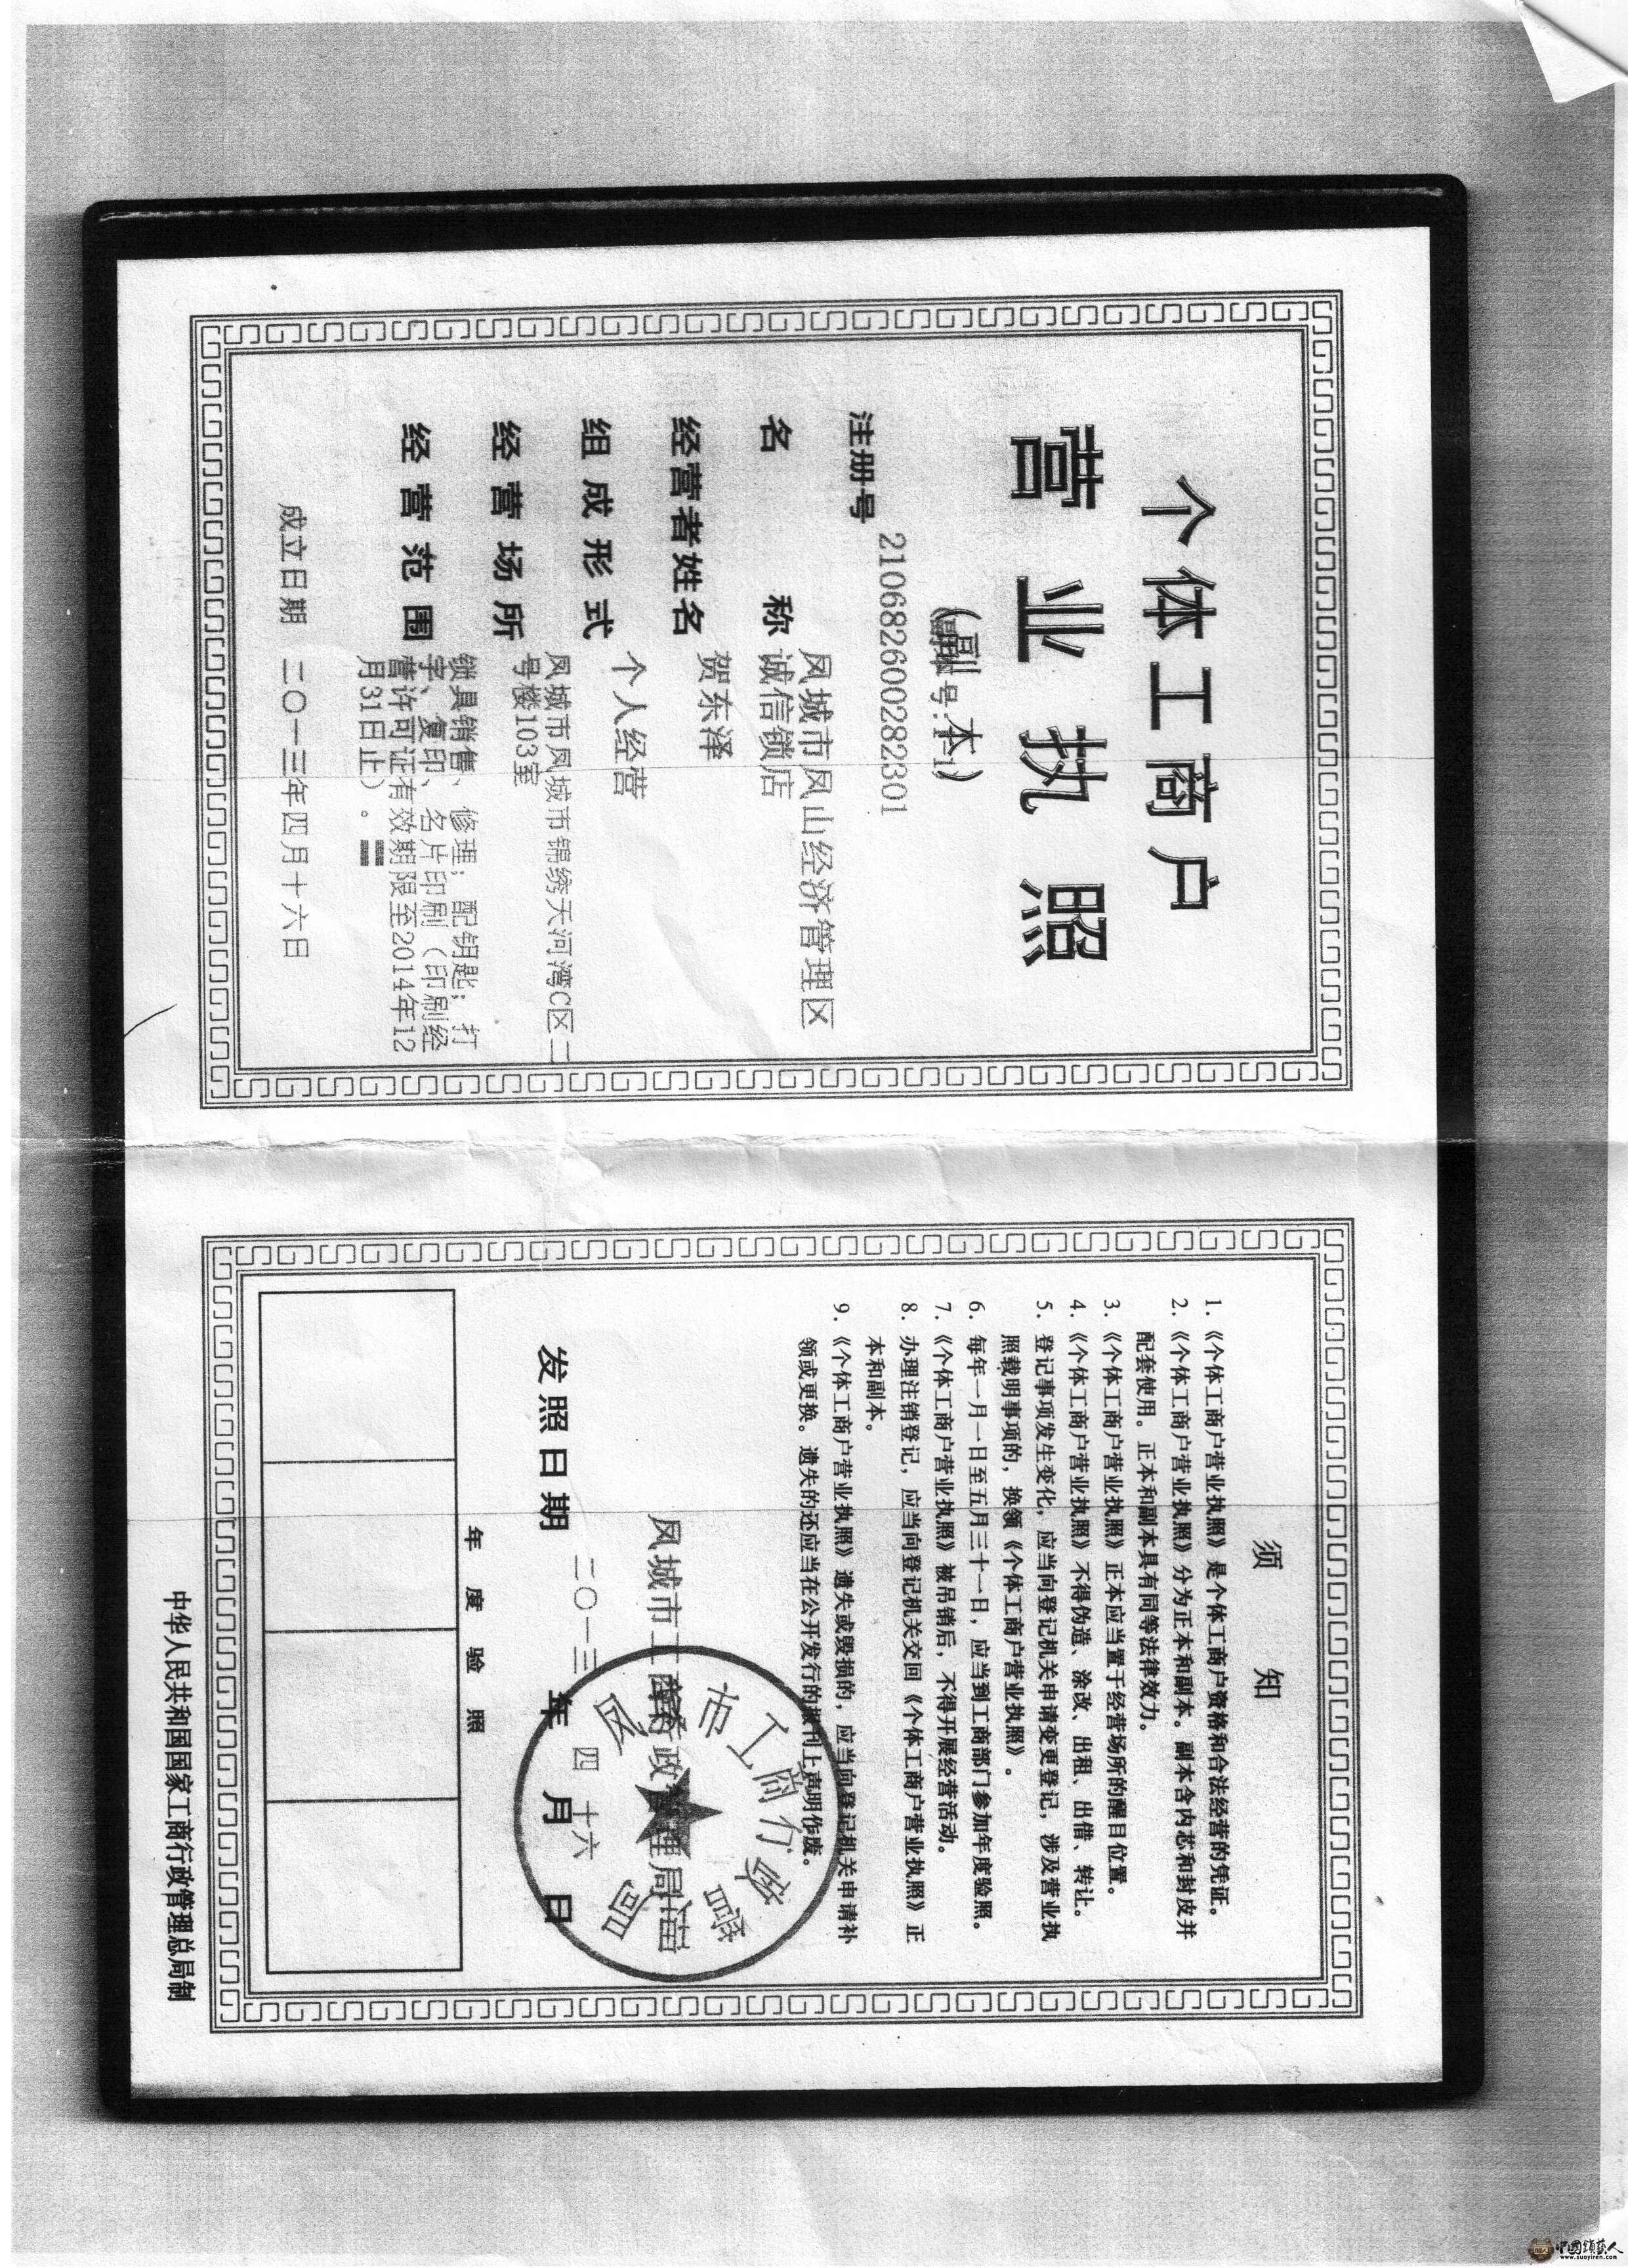 个体工商户
营业执照
（副　本）
（副本号:1-1）
注册号　210682600282301
名　　称　凤城市凤山经济管理区
诚信锁店
经营者姓名　贺东泽
组成形式　个人经营
经营场所　凤城市凤城市锦绣天河湾C区二
号楼103室
经营范围　锁具销售、修理；配钥匙；打
字、复印、名片印刷（印刷经
营许可证有效期限至2014年12
月31日止）。
成立日期　二〇一三年四月十六日
须　知
1.《个体工商户营业执照》是个体工商户资格和合法经营的凭证。
2.《个体工商户营业执照》分为正本和副本。副本含内芯和封皮并
配套使用。正本和副本具有同等法律效力。
3.《个体工商户营业执照》正本应当置于经营场所的醒目位置。
4.《个体工商户营业执照》不得伪造、涂改、出租、出借、转让。
5. 登记事项发生变化，应当向登记机关申请变更登记，涉及营业执
照载明事项的，换领《个体工商户营业执照》。
6. 每年一月一日至五月三十一日，应当到工商部门参加年度验照。
7.《个体工商户营业执照》被吊销后，不得开展经营活动。
8. 办理注销登记，应当向登记机关交回《个体工商户营业执照》正
本和副本。
9.《个体工商户营业执照》遗失或毁损的，应当向登记机关申请补
领或更换。遗失的还应当在公开发行的报刊上声明作废。
凤城市工商行政管理局
发照日期　二〇一三年四月十六日
年度验照
中华人民共和国国家工商行政管理总局制
中国锁艺人
www.suoyiren.com